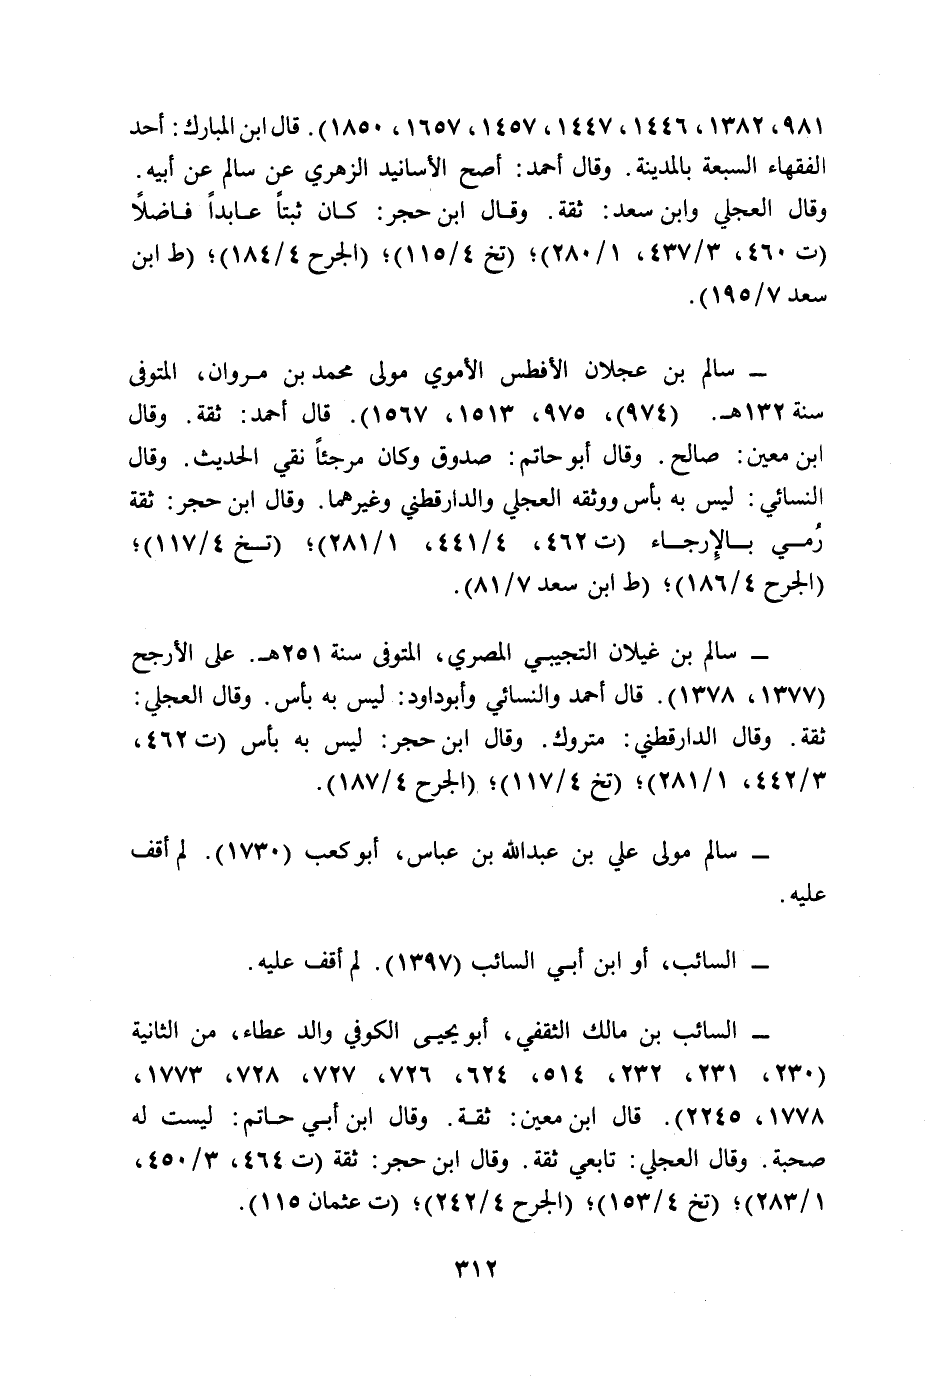 ٩٨١، ١٣٨٢، ١٤٤٦، ١٤٤٧، ١٤٥٧، ١٦٥٧، ١٨٥٠). قال ابن المبارك: أحد
الفقهاء السبعة بالمدينة. وقال أحمد: أصح الأسانيد الزهري عن سالم عن أبيه.
وقال العجلي وابن سعد: ثقة. وقال ابن حجر: كان ثبتاً عابداً فاضلاً
(ت ٤٦٠، ٤٣٧/٣، ٢٨٠/١)؛ (تخ ١١٥/٤)؛ (الجرح ١٨٤/٤)؛ (ط ابن
سعد ١٩٥/٧).
ـ سالم بن عجلان الأفطس الأموي مولى محمد بن مروان، المتوفى
سنة ١٣٢هـ. (٩٧٤)، ٩٧٥، ١٥١٣، ١٥٦٧). قال أحمد: ثقة. وقال
ابن معين: صالح. وقال أبو حاتم: صدوق وكان مرجئاً نقي الحديث. وقال
النسائي: ليس به بأس ووثقه العجلي والدارقطني وغيرهما. وقال ابن حجر: ثقة
رُمي بالإرجاء (ت ٤٦٢، ٤٤١/٤، ٢٨١/١)؛ (تخ ١١٧/٤)؛
(الجرح ١٨٦/٤)؛ (ط ابن سعد ٨١/٧).
ـ سالم بن غيلان التجيبي المصري، المتوفى سنة ٢٥١هـ. على الأرجح
(١٣٧٧، ١٣٧٨). قال أحمد والنسائي وأبوداود: ليس به بأس. وقال العجلي:
ثقة. وقال الدارقطني: متروك. وقال ابن حجر: ليس به بأس (ت ٤٦٢،
٤٤٢/٣، ٢٨١/١)؛ (تخ ١١٧/٤)؛ (الجرح ١٨٧/٤).
ـ سالم مولى علي بن عبدالله بن عباس، أبو كعب (١٧٣٠). لم أقف
عليه.
ـ السائب، أو ابن أبي السائب (١٣٩٧). لم أقف عليه.
ـ السائب بن مالك الثقفي، أبو يحيى الكوفي والد عطاء، من الثانية
(٢٣٠، ٢٣١، ٢٣٢، ٥١٤، ٦٢٤، ٧٢٦، ٧٢٧، ٧٢٨، ١٧٧٣،
١٧٧٨، ٢٢٤٥). قال ابن معين: ثقة. وقال ابن أبي حاتم: ليست له
صحبة. وقال العجلي: تابعي ثقة. وقال ابن حجر: ثقة (ت ٤٦٤، ٤٥٠/٣،
٢٨٣/١)؛ (تخ ١٥٣/٤)؛ (الجرح ٢٤٢/٤)؛ (ت عثمان ١١٥).
٣١٢